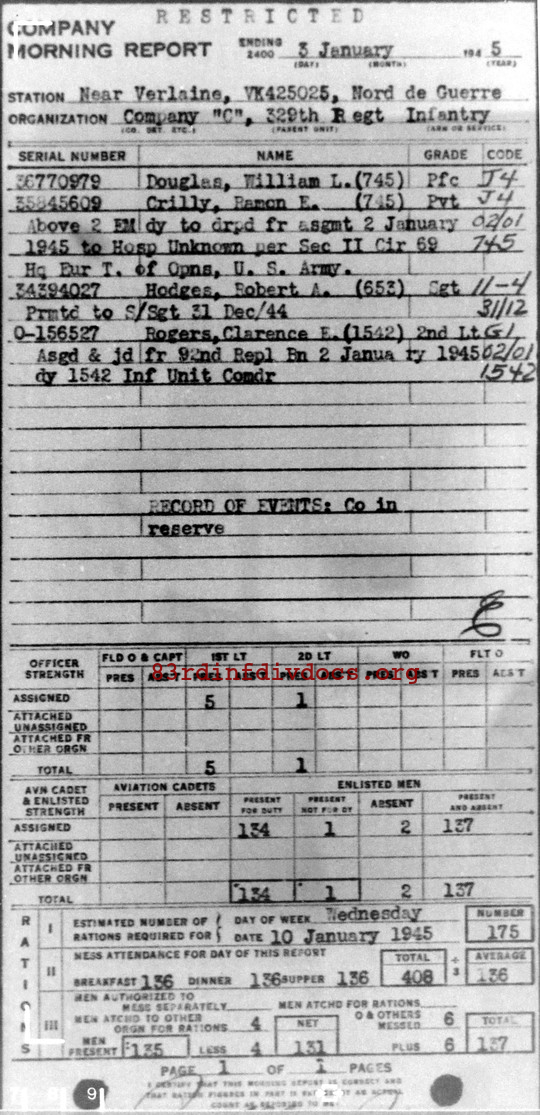 RESTRICTED
COMPANY
MORNING REPORT ENDING 2400 3 January 194 5
(DAY) (MONTH) (YEAR)
STATION Near Verlaine, VK425025, Nord de Guerre
ORGANIZATION Company "C", 329th Regt Infantry
(CO. DET. ETC.) (PARENT UNIT) (ARM OR SERVICE)
SERIAL NUMBER NAME GRADE CODE
36770979 Douglas, William L.(745) Pfc J4
35845609 Crilly, Ramon E. (745) Pvt J4
Above 2 EM dy to drpd fr asgmt 2 January 02/01
1945 to Hosp Unknown per Sec II Cir 69 745
Hq Eur T. of Opns, U. S. Army.
34394027 Hodges, Robert A. (653) Sgt 11-4
Prmtd to S/Sgt 31 Dec/44 31/12
O-156527 Rogers,Clarence E.(1542) 2nd Lt G1
Asgd & jd fr 92nd Repl Bn 2 Janua ry 1945 02/01
dy 1542 Inf Unit Comdr 1542
RECORD OF EVENTS: Co in
reserve
OFFICER STRENGTH FLD O & CAPT 1ST LT 2D LT WO FLT O
PRES ABS T PRES ABS T PRES ABS T PRES ABS T PRES ABS T
83rdinfdivdocs.org
ASSIGNED 5 1
ATTACHED UNASSIGNED
ATTACHED FR OTHER ORGN
TOTAL 5 1
AVN CADET & ENLISTED STRENGTH AVIATION CADETS ENLISTED MEN
PRESENT ABSENT PRESENT FOR DUTY PRESENT NOT FOR DY ABSENT PRESENT AND ABSENT
ASSIGNED 134 1 2 137
ATTACHED UNASSIGNED
ATTACHED FR OTHER ORGN
TOTAL 134 1 2 137
RATIONS
I ESTIMATED NUMBER OF RATIONS REQUIRED FOR DAY OF WEEK Wednesday NUMBER
DATE 10 January 1945 175
II MESS ATTENDANCE FOR DAY OF THIS REPORT TOTAL ÷ 3 AVERAGE
BREAKFAST 136 DINNER 136 SUPPER 136 408 136
III MEN AUTHORIZED TO MESS SEPARATELY MEN ATCHD FOR RATIONS
MEN ATCHD TO OTHER ORGN FOR RATIONS 4 NET O & OTHERS MESSED 6 TOTAL
MEN PRESENT 135 LESS 4 131 PLUS 6 137
PAGE 1 OF 1 PAGES
I CERTIFY THAT THIS MORNING REPORT IS CORRECT AND
THAT RATION FIGURES IN PART III
9